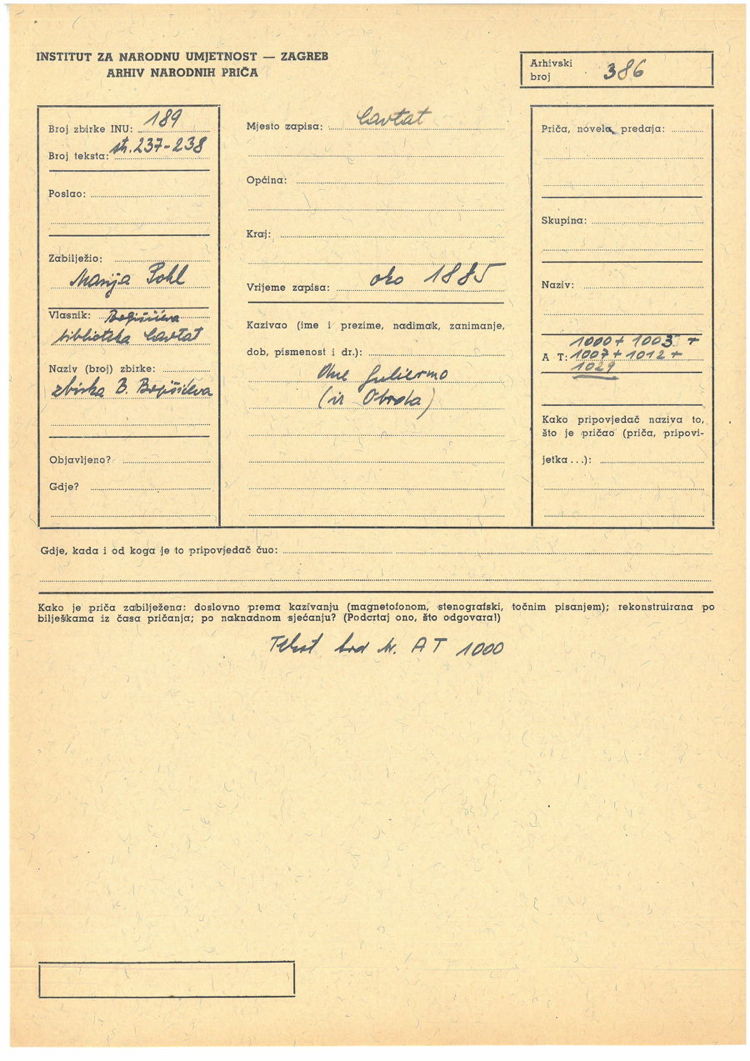 INSTITUT ZA NARODNU UMJETNOST — ZAGREB
ARHIV NARODNIH PRIČA
Arhivski
broj 386
Broj zbirke INU: 189
Broj teksta: str. 237-238
Poslao:
Zabilježio:
Marija Pohl
Vlasnik: Bogišićeva
biblioteka Cavtat
Naziv (broj) zbirke:
zbirka B. Bogišićeva
Objavljeno?
Gdje?
Mjesto zapisa: Cavtat
Općina:
Kraj:
Vrijeme zapisa: oko 1885
Kazivao (ime i prezime, nadimak, zanimanje,
dob, pismenost i dr.):
Guliermo
(iz Obroda)
Priča, novela, predaja:
Skupina:
Naziv:
1000 + 1003 +
A T: 1007 + 1012 +
1029
Kako pripovjedač naziva to,
što je pričao (priča, pripovi-
jetka...):
Gdje, kada i od koga je to pripovjedač čuo:
Kako je priča zabilježena: doslovno prema kazivanju (magnetofonom, stenografski, točnim pisanjem); rekonstruirana po
bilješkama iz časa pričanja; po naknadnom sjećanju? (Podcrtaj ono, što odgovara!)
Tekst kod br. AT 1000